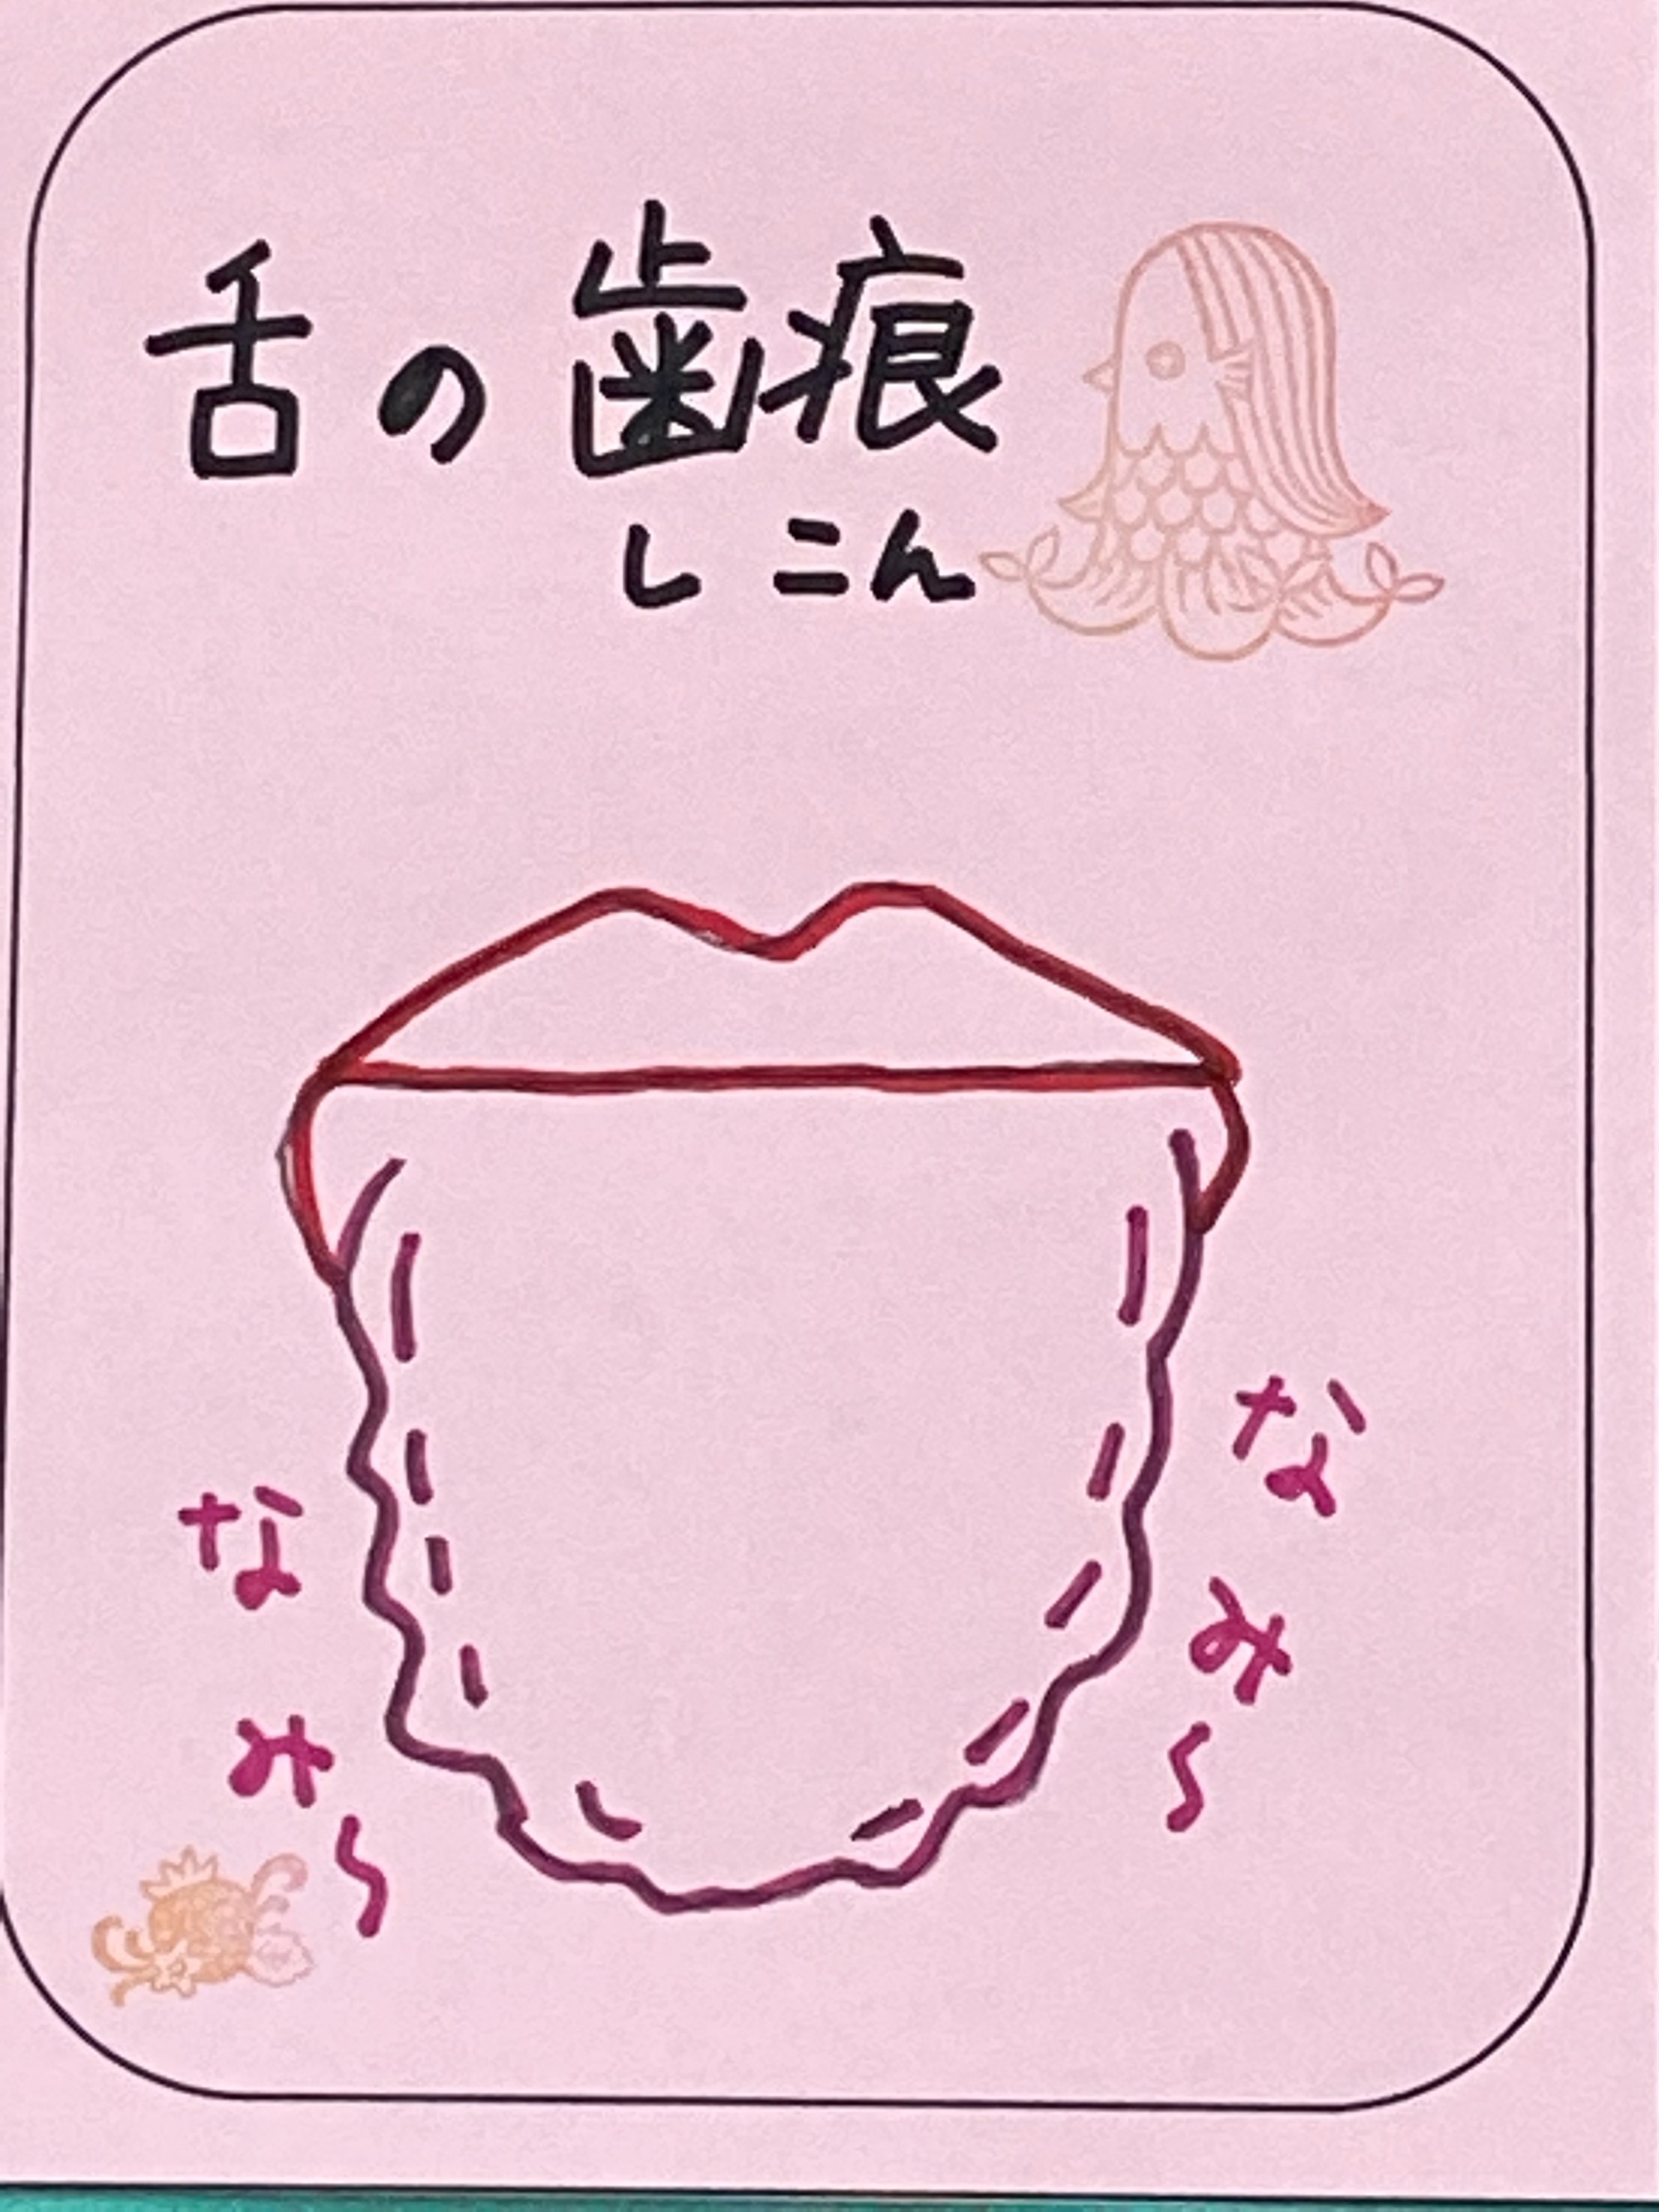 舌の歯痕
しこん
なみ〜
なみ〜